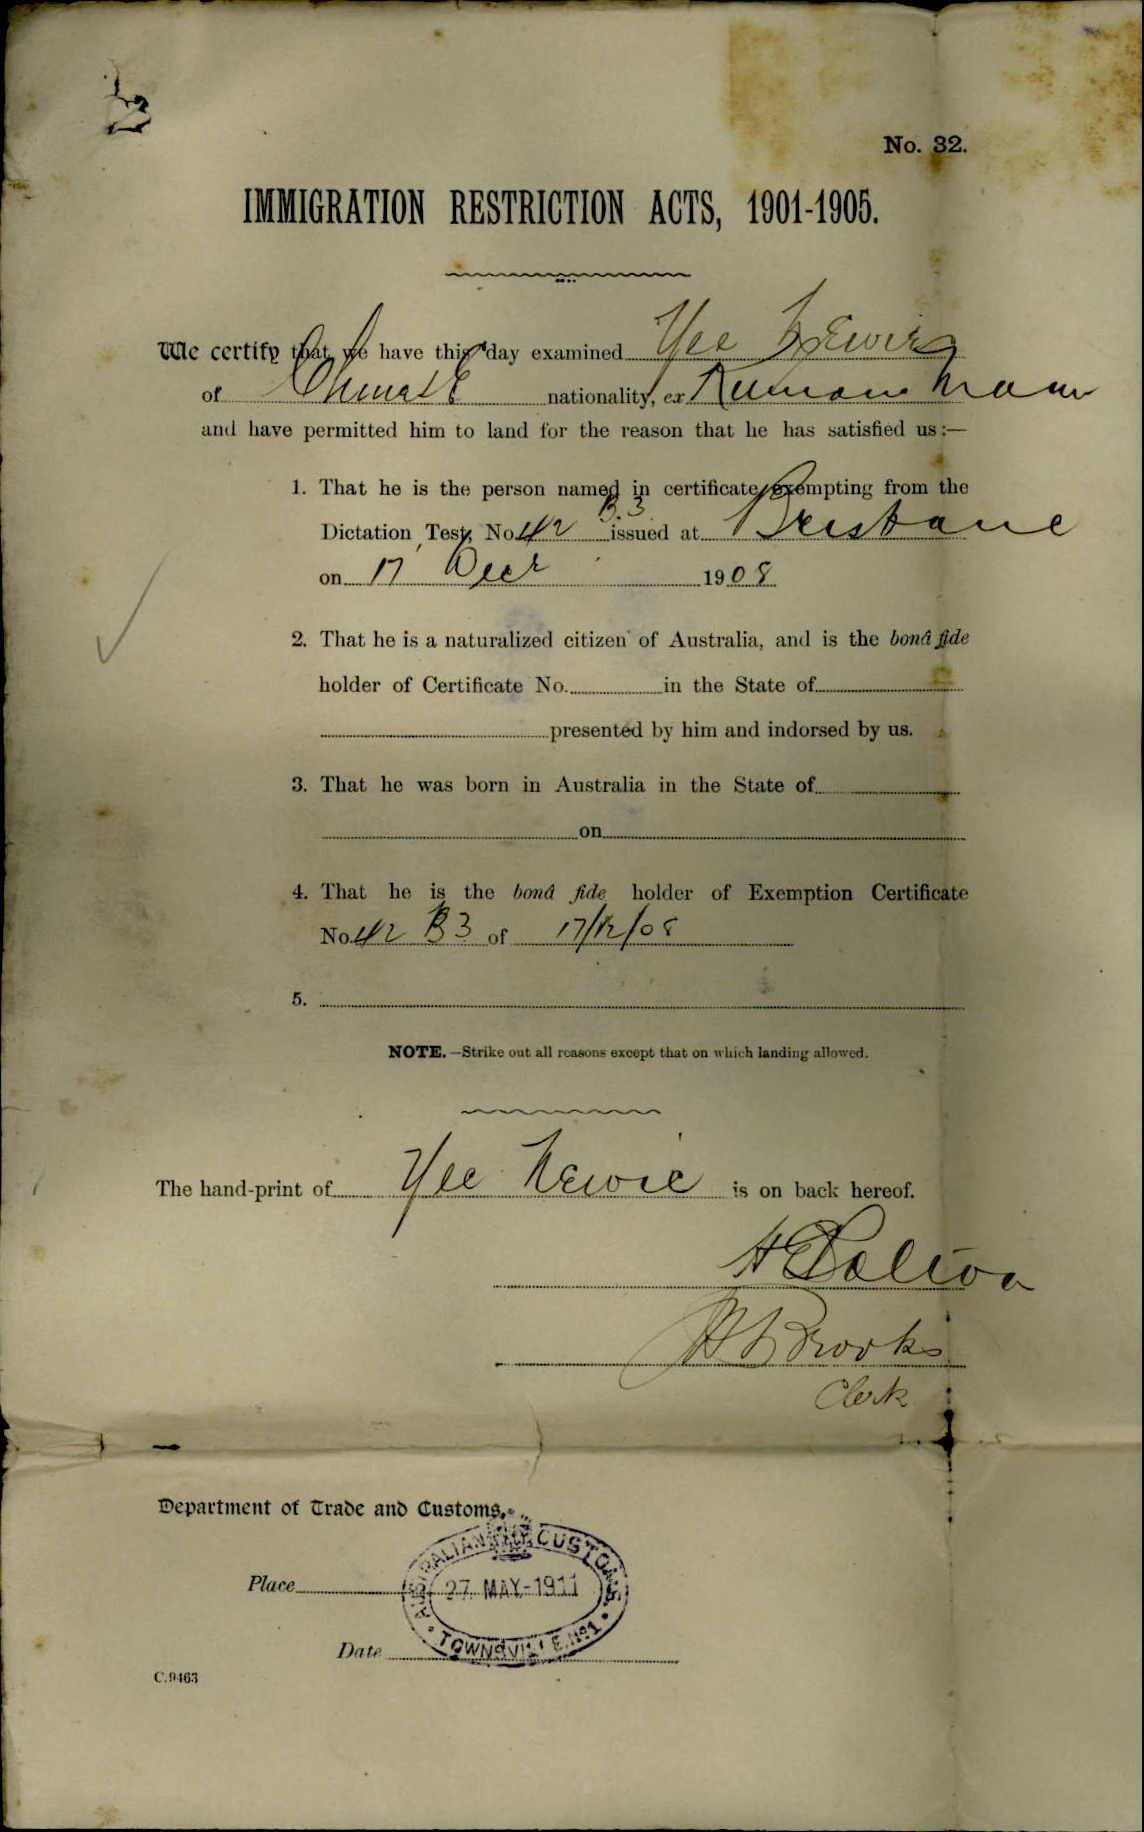 No. 32.
IMMIGRATION RESTRICTION ACTS, 1901-1905.
We certify that we have this day examined Yee Newie
of Chinese nationality, ex Kumano Maru
and have permitted him to land for the reason that he has satisfied us:—
1. That he is the person named in certificate exempting from the
B. 3
Dictation Test, No. 42 issued at Brisbane
on 17 Decr 1908
2. That he is a naturalized citizen of Australia, and is the bonâ fide
holder of Certificate No. in the State of
presented by him and indorsed by us.
3. That he was born in Australia in the State of
on
4. That he is the bonâ fide holder of Exemption Certificate
No. 42 B3 of 17/12/08
5.
NOTE.—Strike out all reasons except that on which landing allowed.
The hand-print of Yee Newie is on back hereof.
Brooks
Clerk
Department of Trade and Customs,
AUSTRALIAN CUSTOMS
Place
27 MAY-1911
TOWNSVILLE. No 1
Date
C.9463